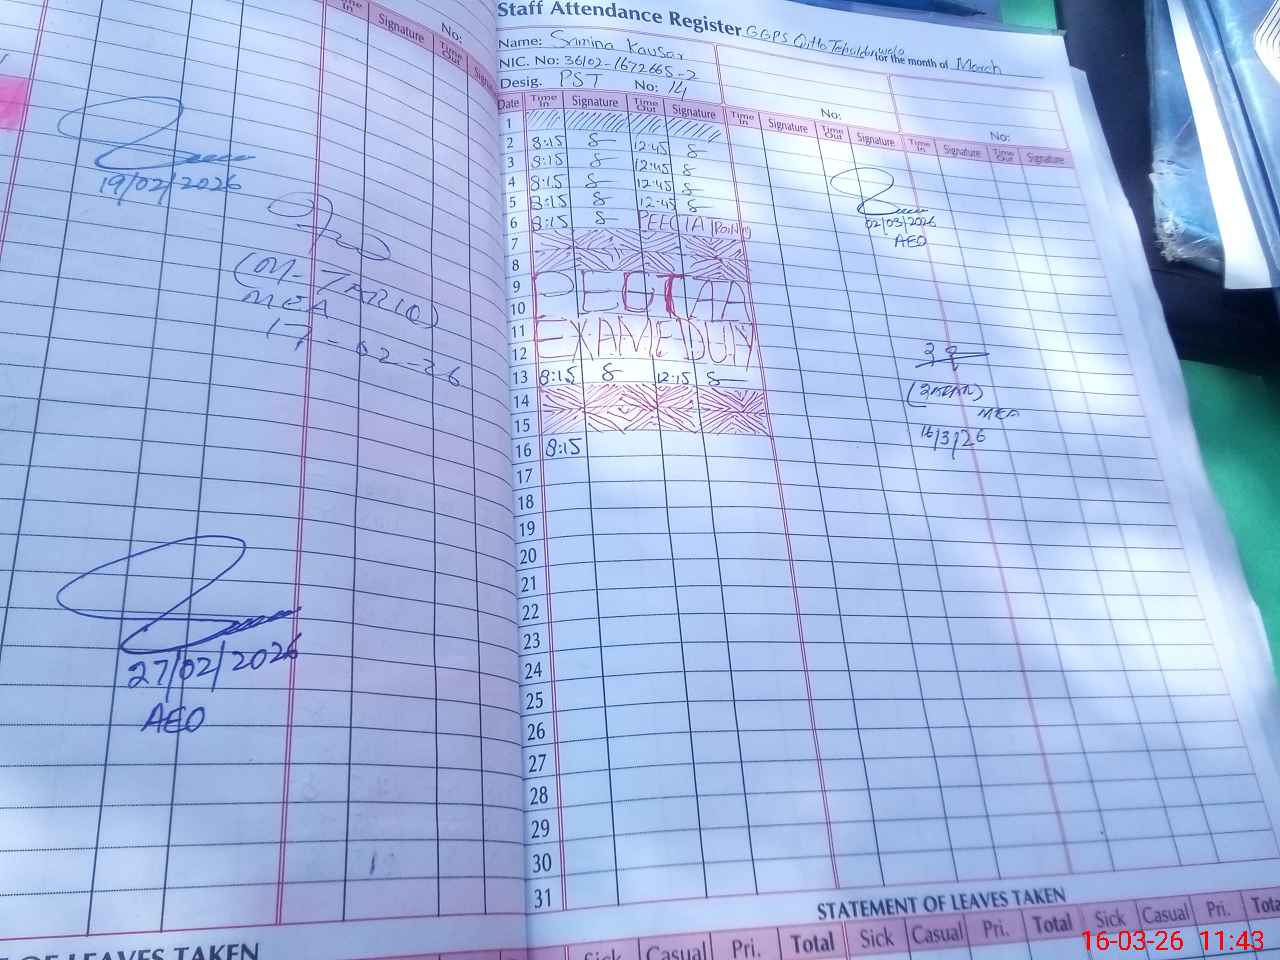 No:
Time In Signature Time Out
19/02/2026
MEA
17-02-26
27/02/2026
AEO
OF LEAVES TAKEN
Staff Attendance Register GGPS for the month of March
Name: Samina Kausar
NIC. No: 36102-1672665-2
Desig. PST No: 14
No:
No:
Date Time In Signature Time Out Signature Time In Signature Time Out Signature Time In Signature Time Out Signature
1
2 8:15 12:45
3 8:15 12:45
4 8:15 12:45
5 8:15 12:45
6 8:15
7
8
9
10
11
12 EXAM DUTY
13 8:15 12:15
14
15
16 8:15
17
18
19
20
21
22
23
24
25
26
27
28
29
30
31
02/03/2026
AEO
MEA
16/3/26
STATEMENT OF LEAVES TAKEN
Sick Casual Pri. Total Sick Casual Pri. Total Sick Casual Pri. Total
16-03-26 11:43